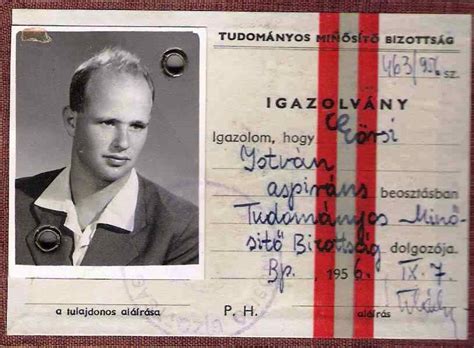 TUDOMÁNYOS MINŐSÍTŐ BIZOTTSÁG
463/956 sz.
IGAZOLVÁNY
Igazolom, hogy Eörsi
István
aspiráns beosztásban
Tudományos Minő-
sítő Bizottság dolgozója.
Bp. 1956. IX. 7.
a tulajdonos aláírása P. H. aláírás